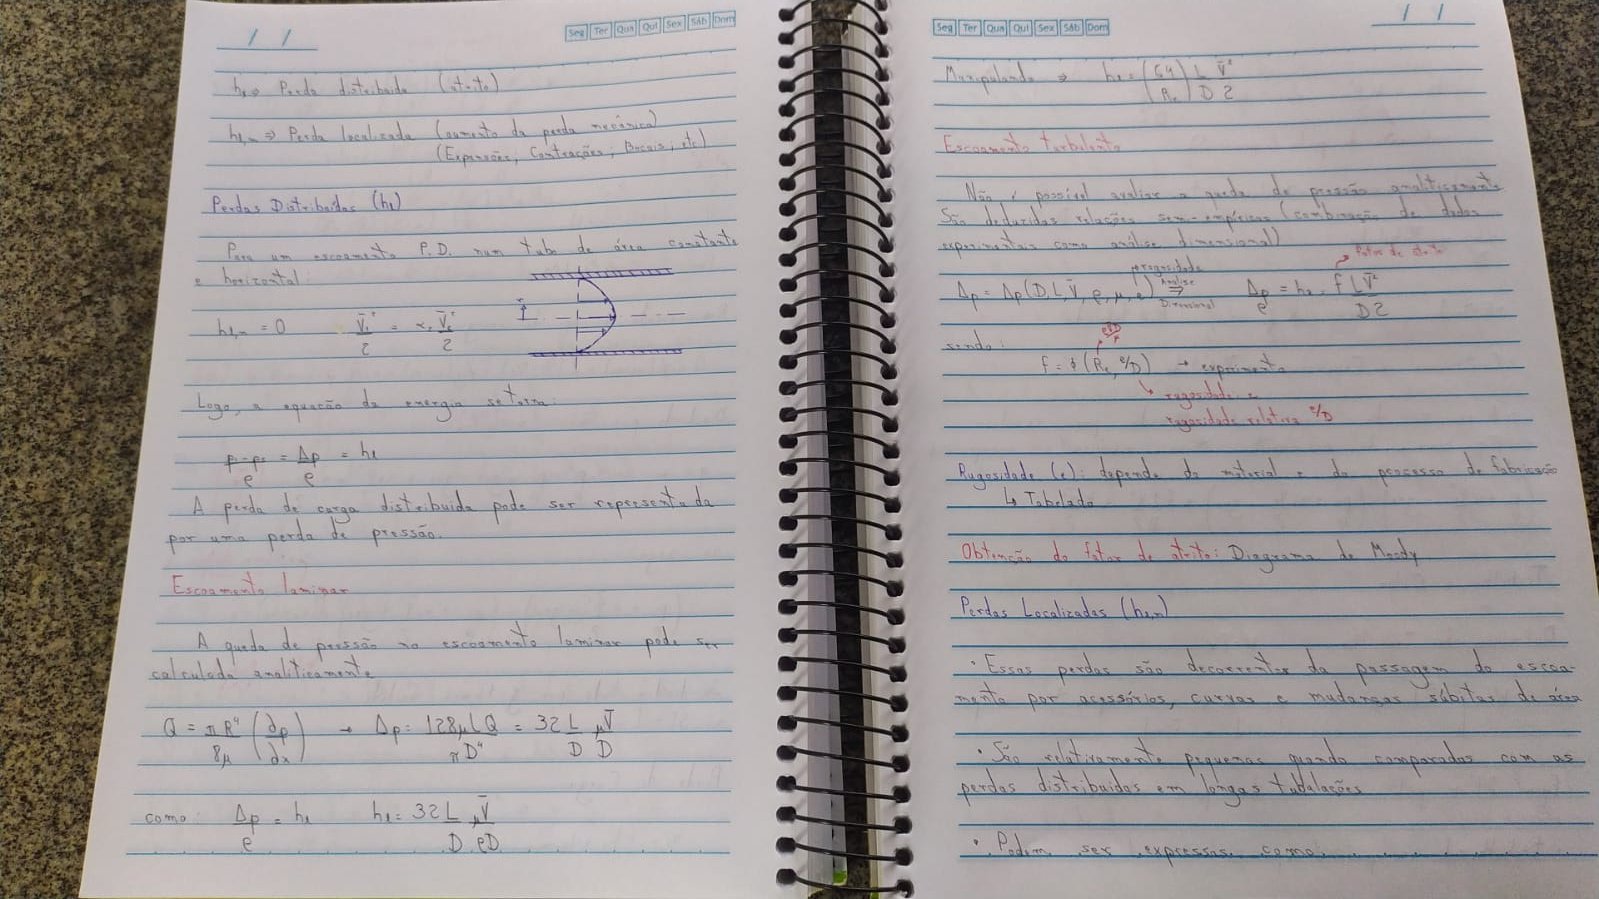 / /
Seg Ter Qua Qui Sex Sáb Dom
hl => Perda distribuida (atrito)
hl,m => Perda localizada (aumento da perda mecânica)
(Expansões, Contrações, Bocais, etc)
Perdas Distribuídas (hl)
Para um escoamento P.D. num tubo de área constante
e horizontal:
hl,m = 0
Logo, a equação da energia se torna:
Δp/ρ = hl
A perda de carga distribuida pode ser representada
por uma perda de pressão.
Escoamento laminar
A queda de pressão no escoamento laminar pode ser
calculada analiticamente
Q = πR⁴/8μ (∂p/∂x) → Δp = 128μLQ/πD⁴ = 32 L/D μV̄/D
como: Δp/ρ = hl hl = 32 L/D μV̄/ρD
/ /
Seg Ter Qua Qui Sex Sáb Dom
Manipulando => hl = (64/Re) L/D V̄²/2
Escoamento turbulento
Não é possível avaliar a queda de pressão analiticamente
São deduzidas relações semi-empíricas (combinação de dados
experimentais com análise dimensional)
Fator de atrito
rugosidade
Δp = Δp(D, L, V̄, ρ, μ, e) Análise Dimensional => Δp/ρ = hl = f L/D V̄²/2
sendo:
f = ϕ (Re, e/D) → experimento
rugosidade e
rugosidade relativa e/D
Rugosidade (e): depende do material e do processo de fabricação
↳ Tabelado
Obtenção do fator de atrito: Diagrama de Moody
Perdas Localizadas (hl,m)
• Essas perdas são decorrentes da passagem do escoa-
mento por acessórios, curvas e mudanças súbitas de área
• São relativamente pequenas quando comparadas com as
perdas distribuidas em longas tubulações
• Podem ser expressas como